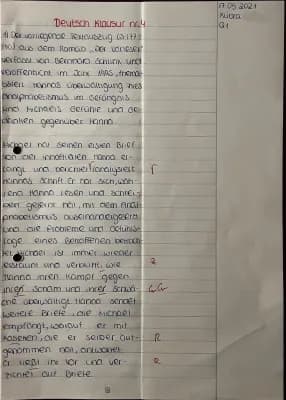 17.05.2021
Q1
Deutsch Klausur nr.4
1) Der vorliegende Textauszug (S.177,
aus dem Roman „Der Vorleser"
verfasst von Bernhard Schlink und
veröffentlicht im Jahr 1995, thema-
Hannas Überwältigung ihres
Analphabetismus im Gefängnis
und Michaels Gefühle und Ge-
danken gegenüber Hanna.
Michael hat seinen ersten Brief
von der inhaftierten Hanna er-
langt und analysiert
Hannas Schrift. Er hat sich, wäh-
rend Hanna lesen und schrei-
ben gelernt hat, mit dem Anal-
phabetismus auseinandergesetzt
und die Probleme und
eines Betroffenen
tet. Michael ist immer wieder
erstaunt und verblüfft, wie
Hanna ihren Kampf gegen
ihren Scham und ihrer Schwä-
che überwältigt. Hanna sendet
weitere Briefe, die Michael
empfängt, worauf er mit
Kasetten, die er selber auf-
genommen hat, antwortet.
Er ließt ihr vor und ver-
zichtet auf Briefe.